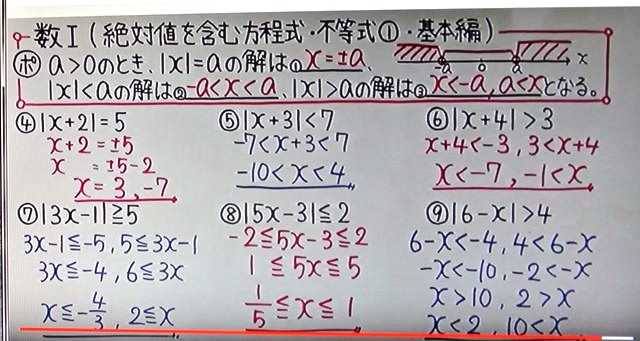 数I(絶対値を含む方程式・不等式①・基本編)
ポ a>0のとき、|x|=aの解は①x=±a、
-a 0 a x
|x|<aの解は②-a<x<a、|x|>aの解は③x<-a, a<xとなる。
④|x+2|=5
x+2=±5
x =±5-2
x=3,-7
⑤|x+3|<7
-7<x+3<7
-10<x<4
⑥|x+4|>3
x+4<-3, 3<x+4
x<-7, -1<x
⑦|3x-1|≧5
3x-1≦-5, 5≦3x-1
3x≦-4, 6≦3x
x≦-4/3, 2≦x
⑧|5x-3|≦2
-2≦5x-3≦2
1≦5x≦5
1/5≦x≦1
⑨|6-x|>4
6-x<-4, 4<6-x
-x<-10, -2<-x
x>10, 2>x
x<2, 10<x